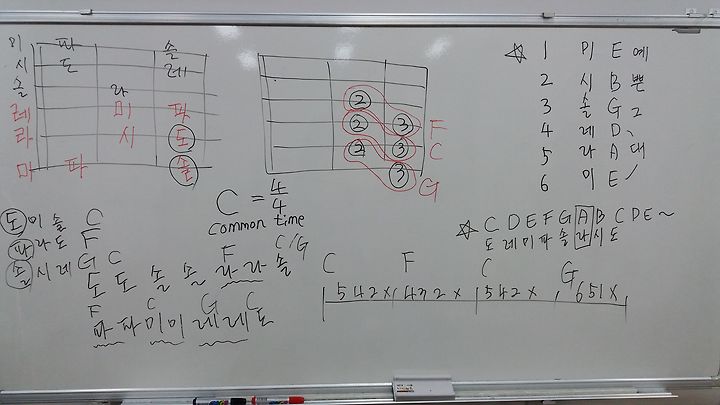 미 파 솔
시 도 레
솔 라
레 미 파
라 시 도
미 파 솔
2
2 3 F
2 3 C
3 G
☆ 1 미 E 예
2 시 B 쁜
3 솔 G 그
4 레 D
5 라 A 대
6 미 E
C = 4/4
common time
도 미 솔 C
파 라 도 F
솔 시 레 G
C F C/G
도 도 솔 솔 라 라 솔
F C G C
파 파 미 미 레 레 도
☆ C D E F G A B C D E ~
도 레 미 파 솔 라 시 도
C F C G
5 4 2 x 4 3 2 x 5 4 2 x 6 5 1 x